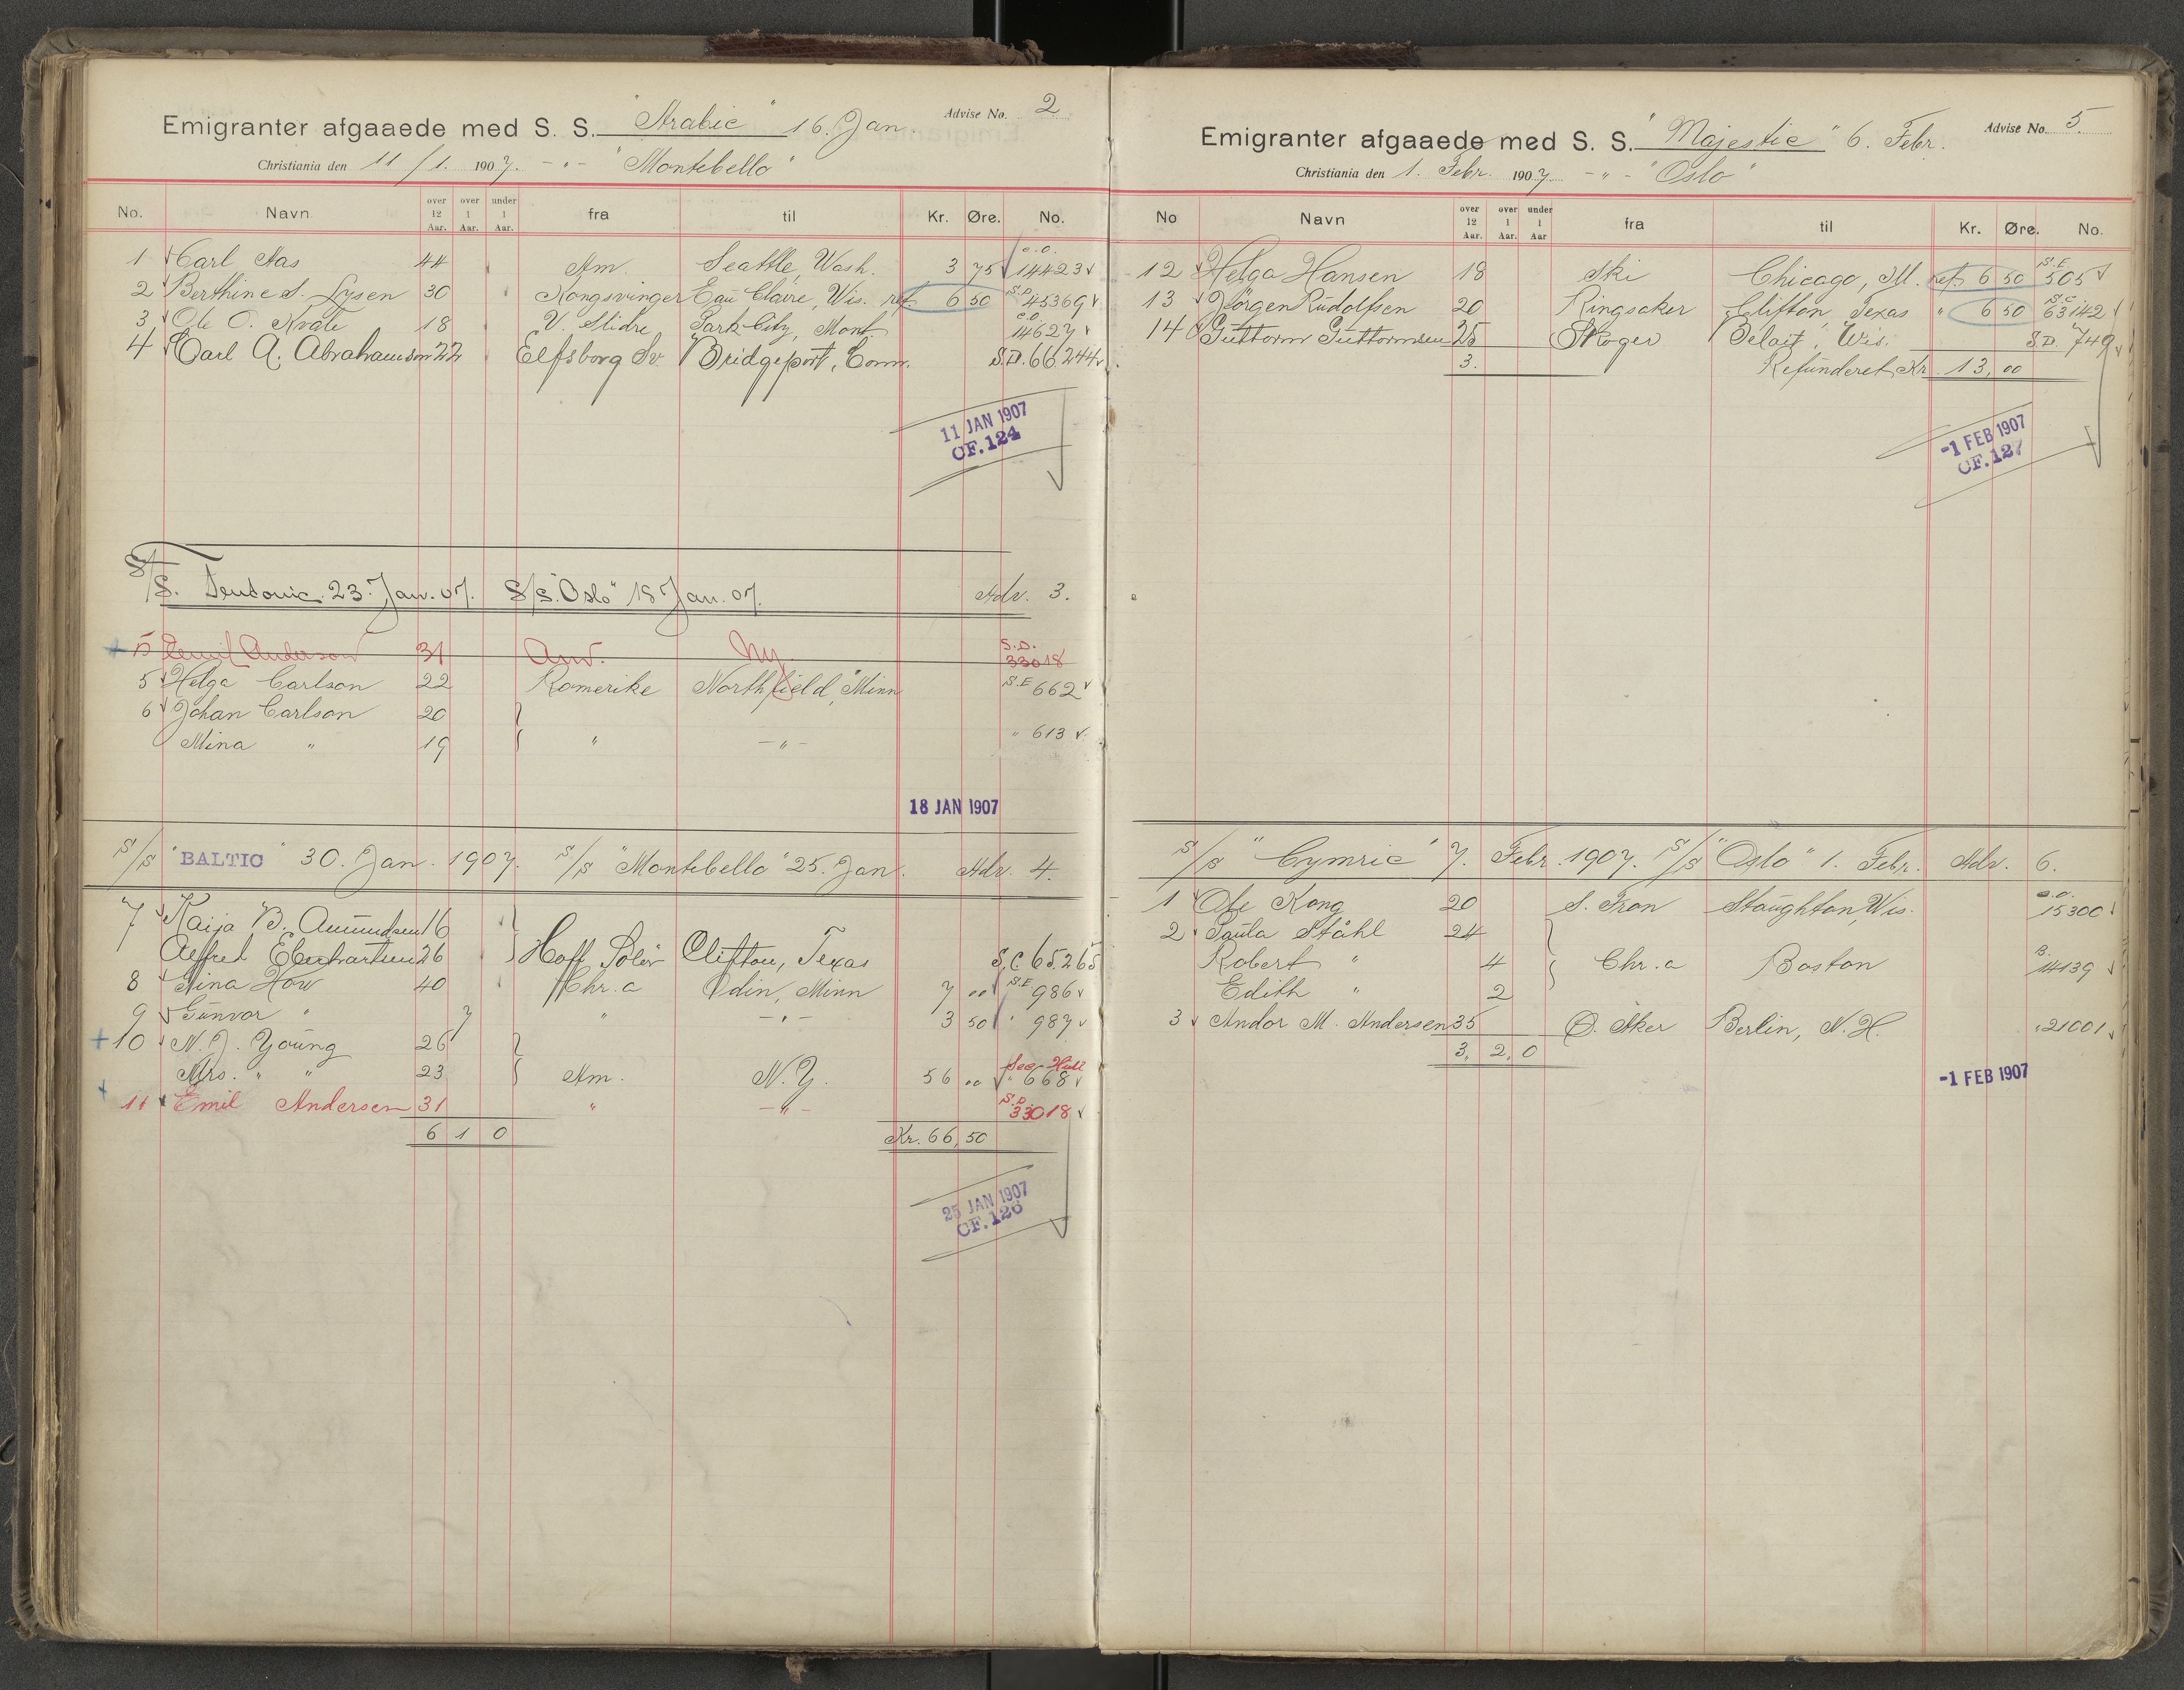 Emigranter afgaaede med S. S. "Arabic" 16. Jan. Advise No. 2
Christiania den 11/1. 1907. -"- "Montebello"
No. Navn over 12 Aar. over 1 Aar. under 1 Aar. fra til Kr. Øre. No.
1 Carl Aas 44 Am. Seattle, Wash. 3 75 C.O. 14423
2 Berthine S. Lysen 30 Kongsvinger Eau Claire, Wis. ref. 6 50 S.D. 45369
3 Ole O. Kvale 18 V. Slidre Park City, Mont. C.O. 14627
4 Carl A. Abrahamson 22 Elfsborg Sv. Bridgeport, Conn. S.D. 66244
11 JAN 1907
CF. 124
S/S. Teutonic 23. Jan. 07. S/S. "Oslo" 18 Jan. 07. Adv. 3.
5 Emil Anderson 31 Am. Ny S.D. 33018
5 Helga Carlson 22 Romerike Northfield, Minn S.E 662
6 Johan Carlson 20
Mina " 19 " -"- " 613
18 JAN 1907
S/S "BALTIC" 30. Jan. 1907. S/S "Montebello" 25. Jan. Adv. 4.
7 Kaija B. Amundsen 16
Alfred 26 Hoff Solör Clifton, Texas S.C. 65265
8 Nina How 40 Chr.a Odin, Minn 7 00 S.E 986
9 Gunvor " 7 " -"- 3 50 " 987
10 N. J. Young 26
Mrs. " " 23 Am. N.Y. 56 00 " 668
11 Emil Andersen 31 " -"- S.D. 33018
6 1 0 Kr. 66,50
25 JAN 1907
CF. 126
Emigranter afgaaede med S. S. "Majestic" 6. Febr. Advise No. 5.
Christiania den 1. Febr. 1907 -"- "Oslo"
No Navn over 12 Aar. over 1 Aar. under 1 Aar fra til Kr. Øre. No.
12 Helga Hansen 18 Ski Chicago, Ill. ref. 6 50 S.E 505
13 Jörgen Rudolfsen 20 Ringsaker Clifton, Texas " 6 50 S.C 63142
14 Guttorm Guttormsen 25 Skoger Beloit, Wis. S.D. 749
3. Refunderet Kr. 13,00
-1 FEB 1907
CF. 127
S/S "Cymric" 7. Febr. 1907. S/S "Oslo" 1. Febr. Adv. 6.
1 Ole Kong 20 S. Fron Stoughton, Wis. 15300
2 Paula Ståhl 24
Robert " 4 Chr.a Boston B. 14139
Edith " 2
3 Andor M. Andersen 35 Ø. Aker Berlin, N.H. " 21001
3. 2. 0
-1 FEB 1907